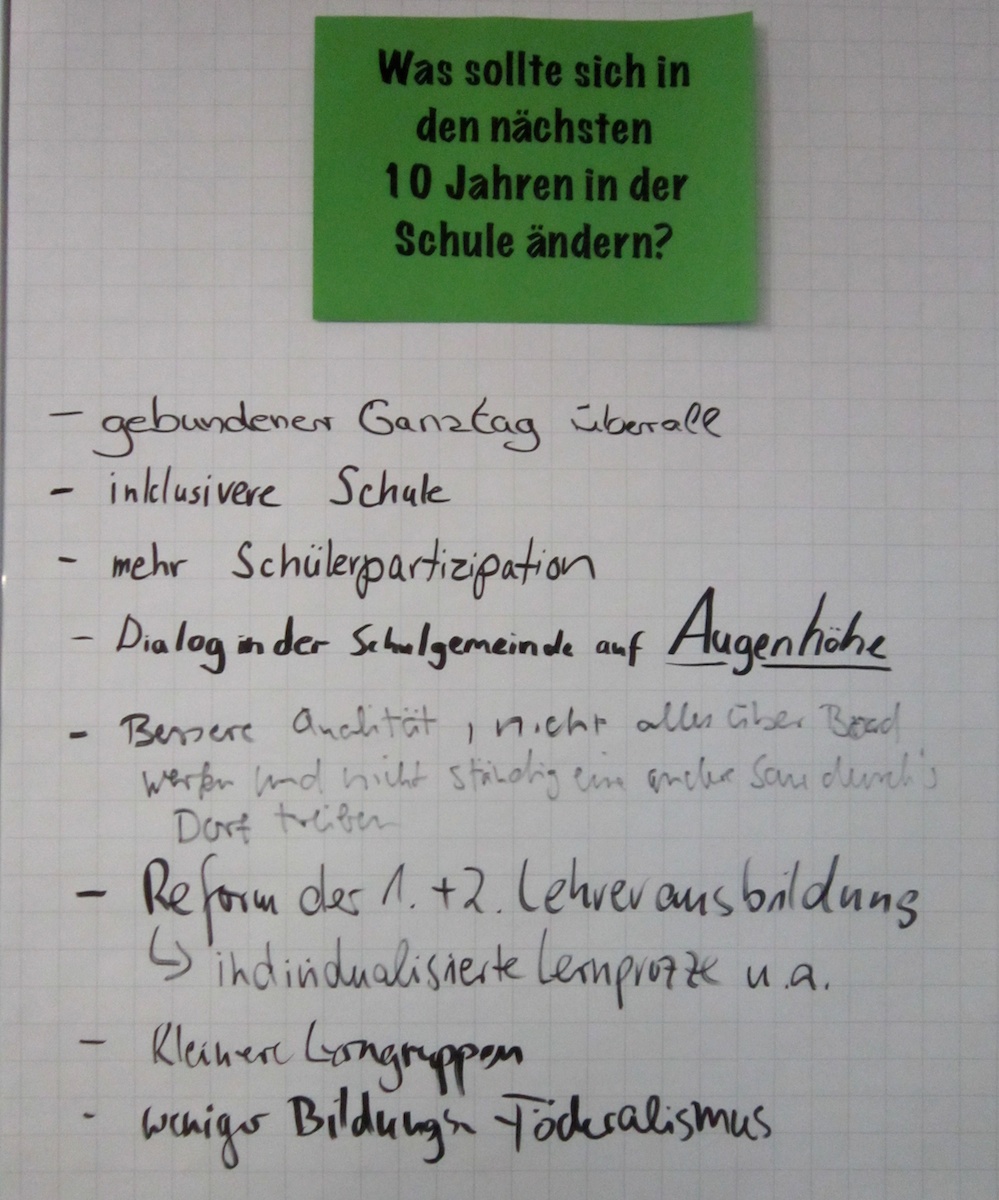 Was sollte sich in
den nächsten
10 Jahren in der
Schule ändern?
- gebundener Ganztag überall
- inklusivere Schule
- mehr Schülerpartizipation
- Dialog in der Schulgemeinde auf Augenhöhe
- Bessere Qualität, nicht alles über Bord
werfen und nicht ständig eine andere Sau durch's
Dorf treiben
- Reform der 1. + 2. Lehrerausbildung
↳ individualisierte Lernprozze u.a.
- Kleinere Lerngruppen
- weniger Bildungs-Föderalismus